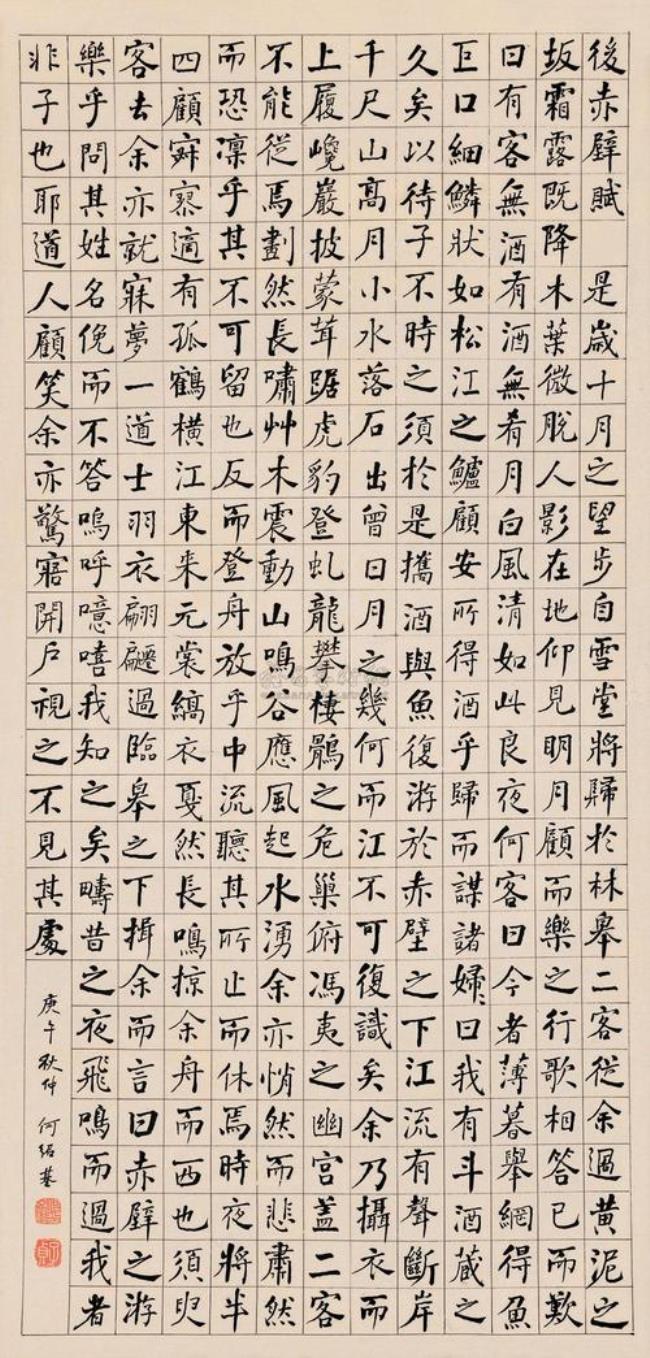 後赤壁賦 是歲十月之望步自雪堂將歸於林皋二客從余過黄泥之
坂霜露既降木葉微脫人影在地仰見明月顧而樂之行歌相答已而歎
曰有客無酒有酒無肴月白風清如此良夜何客曰今者薄暮舉網得魚
巨口細鱗狀如松江之鱸顧安所得酒乎歸而謀諸婦〻曰我有斗酒藏之
久矣以待子不時之須於是攜酒與魚復游於赤壁之下江流有聲斷岸
千尺山高月小水落石出曾日月之幾何而江不可復識矣余乃攝衣而
上履巉巖披蒙茸踞虎豹登虬龍攀棲鶻之危巢俯馮夷之幽宮蓋二客
不能從焉劃然長嘯艸木震動山鳴谷應風起水湧余亦悄然而悲肅然
而恐凜乎其不可留也反而登舟放乎中流聽其所止而休焉時夜將半
四顧寂寥適有孤鶴橫江東来元裳縞衣戛然長鳴掠余舟而西也須臾
客去余亦就寐夢一道士羽衣翩躚過臨皋之下揖余而言曰赤壁之游
樂乎問其姓名俛而不答嗚呼噫嘻我知之矣疇昔之夜飛鳴而過我者
非子也耶道人顧笑余亦驚寤開戶視之不見其處
庚午秋仲 何紹基